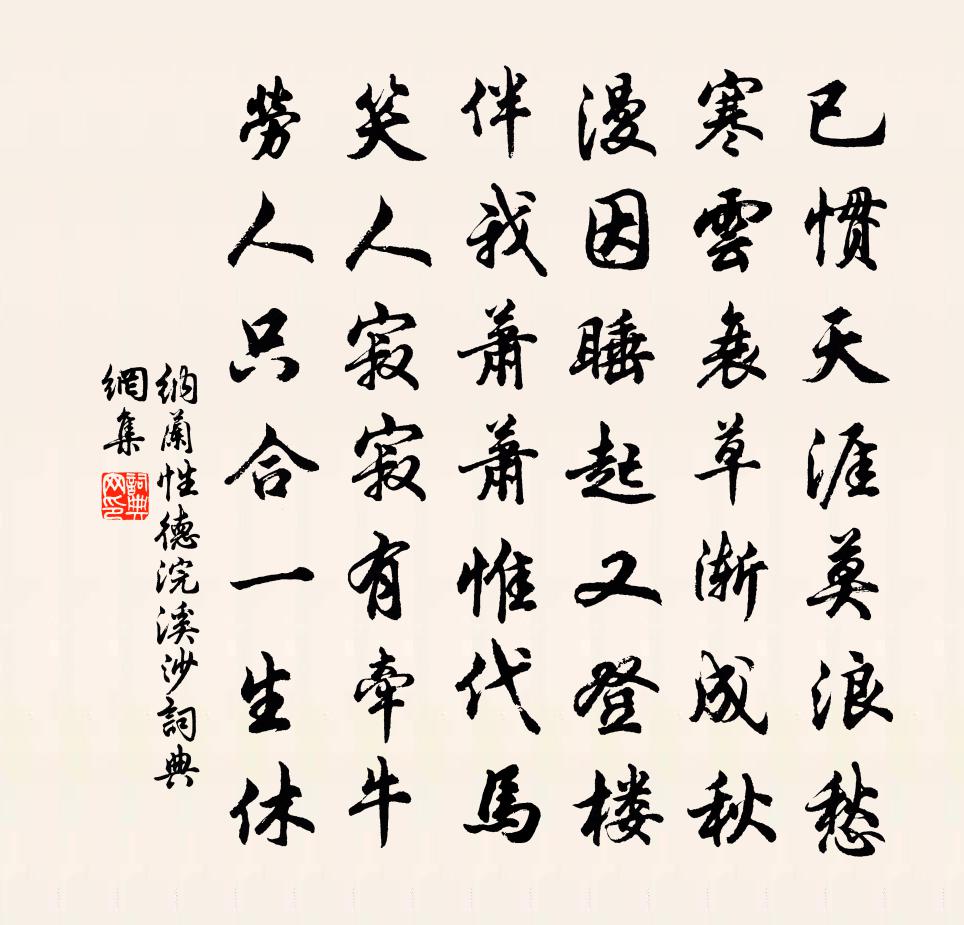 已惯天涯莫浪愁
寒雲衰草渐成秋
漫因睡起又登楼
伴我萧萧惟代馬
笑人寂寂有牽牛
勞人只合一生休
納蘭性德浣溪沙詞典
網集
詞典
网印